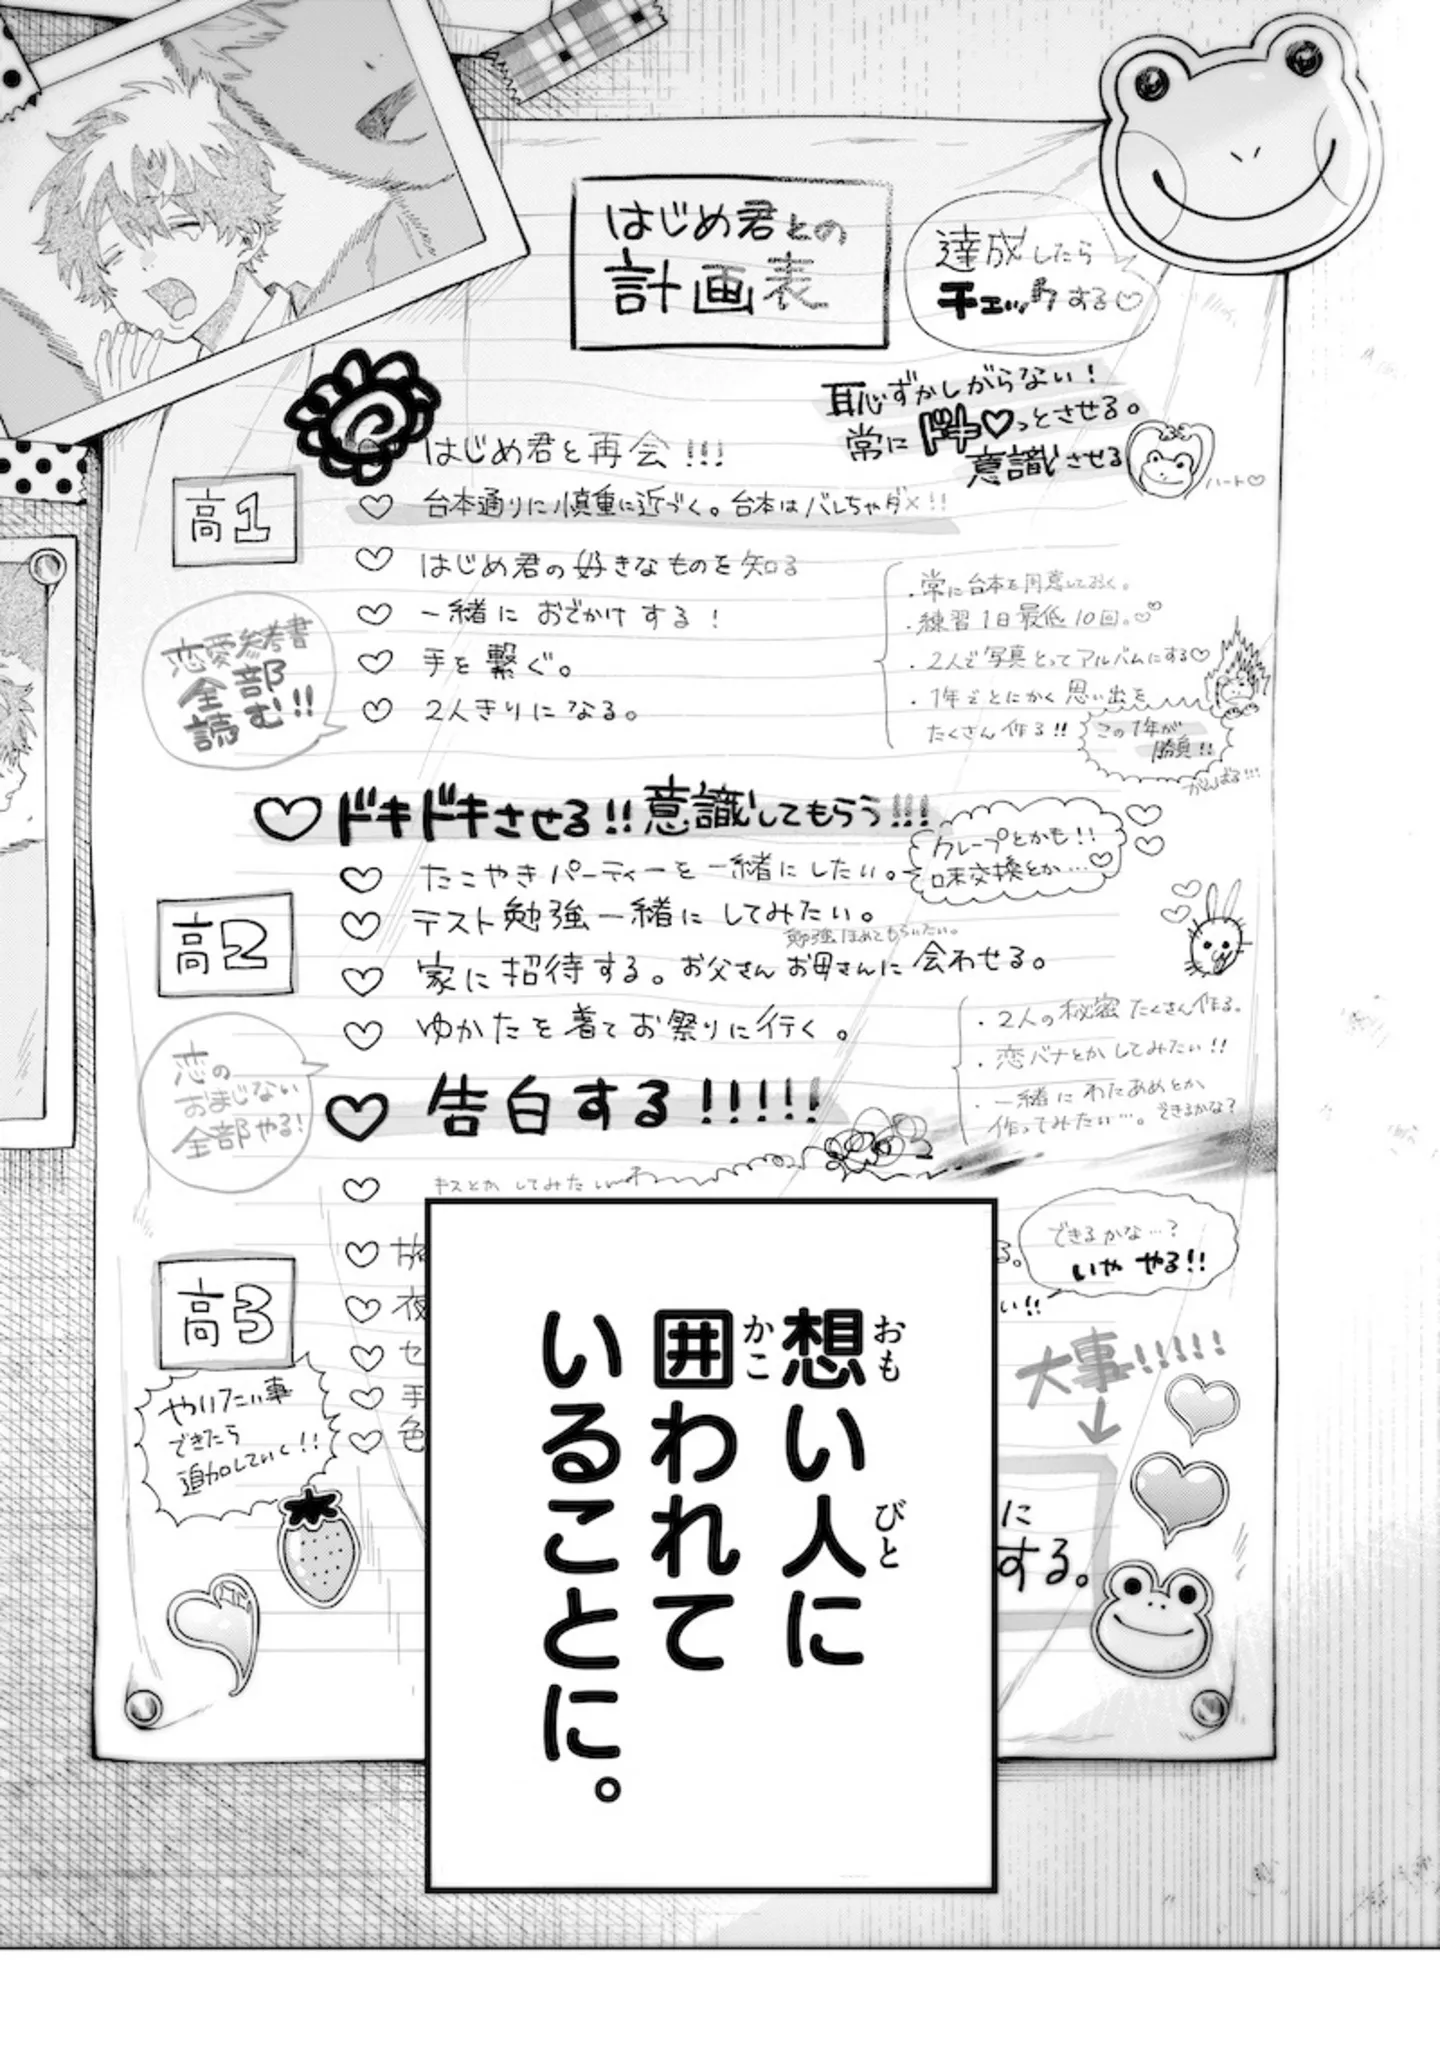 はじめ君との
計画表
達成したら
チェックする♡
恥ずかしがらない!
常にドキ♡っとさせる。
意識させる
ハート♡
はじめ君と再会!!!
高1
台本通りに慎重に近づく。台本はバレちゃダメ!!
はじめ君の好きなものを知る
一緒におでかけする!
手を繋ぐ。
2人きりになる。
・常に台本を用意しておく。
・練習1日最低10回。♡
・2人で写真とってアルバムにする♡
・1年でとにかく思い出を
たくさん作る!!
この1年が
勝負!!
がんばる!!!
恋愛参考書
全部
読む!!
♡ドキドキさせる!!意識してもらう!!!
クレープとかも!!
味交換とか…♡
高2
たこやきパーティーを一緒にしたい。
テスト勉強一緒にしてみたい。
勉強ほめてもらいたい。
家に招待する。お父さんお母さんに会わせる。
ゆかたを着てお祭りに行く。
・2人の秘密たくさん作る。
・恋バナとかしてみたい!!
・一緒にわたあめとか
作ってみたい…。できるかな?
恋の
おまじない
全部やる!
♡告白する!!!!!
キスとかしてみたい
できるかな…?
いややる!!
高3
旅
夜
い!!
セ
手
色
やりたい事
できたら
追加していく!!
大事!!!!!
に
する。
想い人に
おも
びと
囲われて
かこ
いることに。